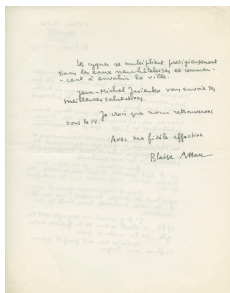 Les cygnes se multiplient prodigieusement
dans les eaux neuchâteloises et commen-
cent à envahir la ville.
Jean-Michel vous envoie ses
meilleures salutations.
Je crois que nous nous retrouverons
tous le 14.
Avec ma fidèle affection
Blaise